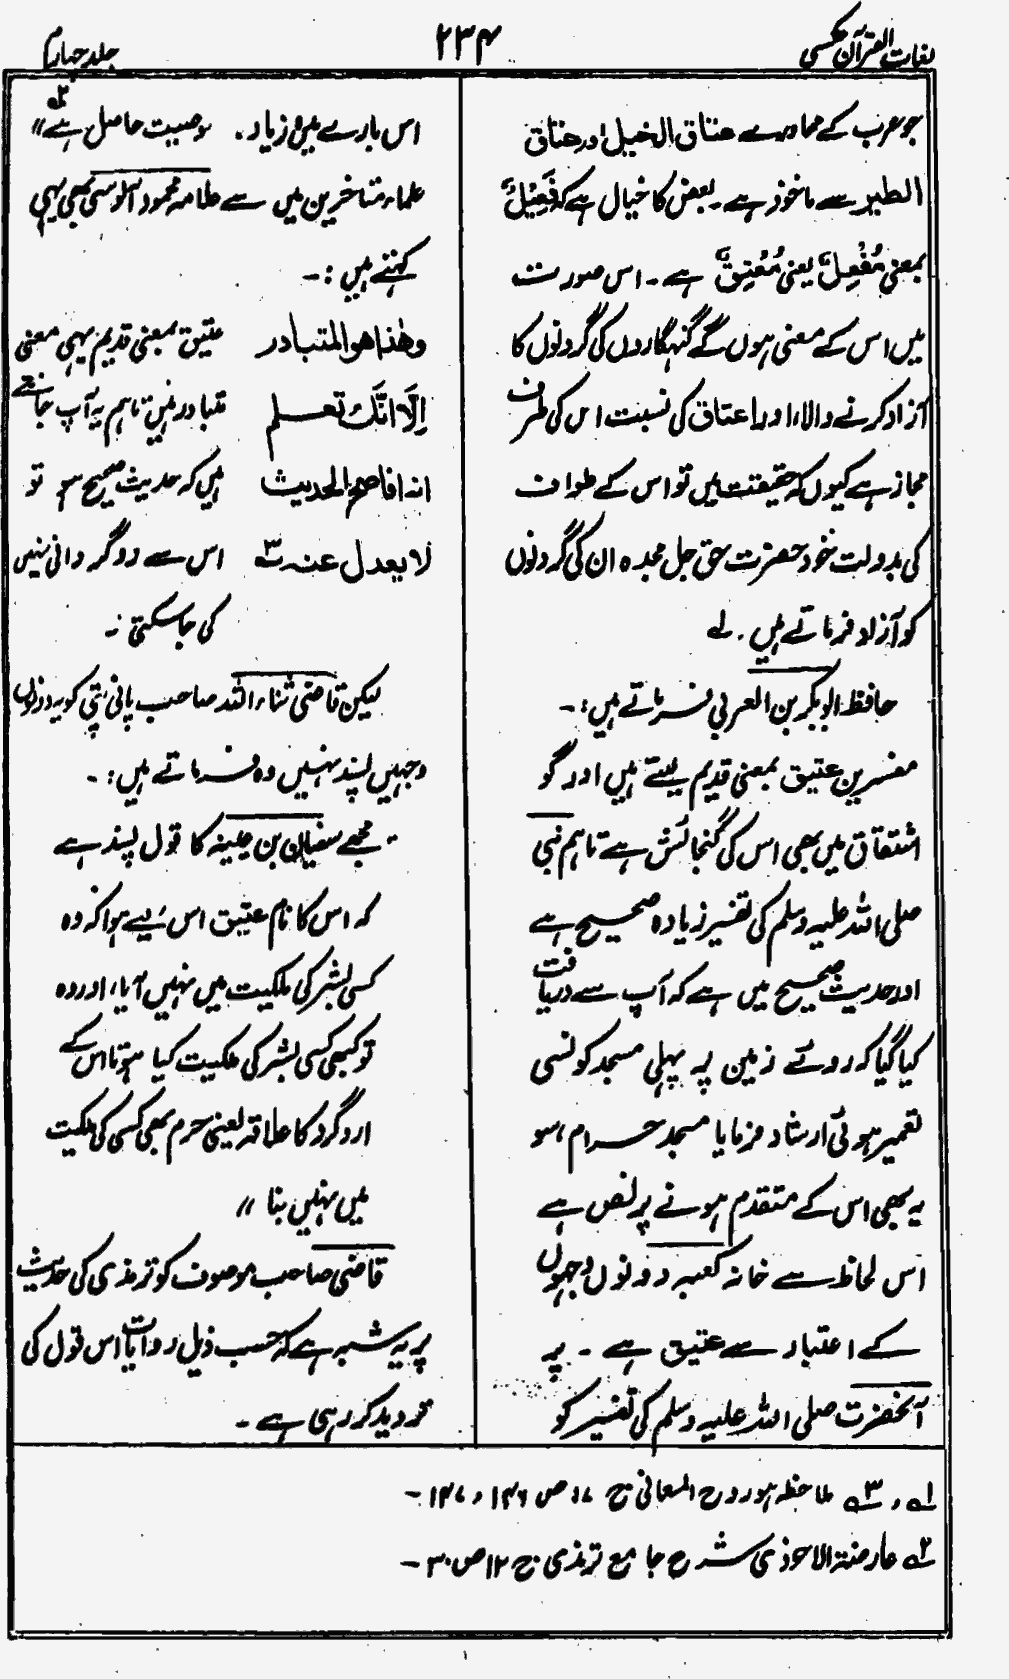 لغات القرآن عکسی
۲۳۴
جلد چہارم
جو عرب کے محاورے عتاق الخیل اور عتاق
الطیر سے ماخوذ ہے۔ بعض کا خیال ہے کہ فَعِیْلٌ
بمعنی مُفْعِلٌ یعنی مُعْتِقٌ ہے۔ اس صورت
میں اس کے معنی ہوں گے گنہگاروں کی گردنوں کا
آزاد کرنے والا، اور اعتاق کی نسبت اس کی طرف
مجاز ہے کیوں کہ حقیقت میں تو اس کے طواف
کی بدولت خود حضرت حق جل مجدہ ان کی گردنوں
کو آزاد فرماتے ہیں۔ لے
حافظ ابوبکر بن العربی فرماتے ہیں:۔
مفسرین عتیق بمعنی قدیم لیتے ہیں اور گو
اشتقاق میں بھی اس کی گنجائش ہے تاہم نبی
صلی اللہ علیہ وسلم کی تفسیر زیادہ صحیح ہے
اور حدیث صحیح میں ہے کہ آپ سے دریافت
کیا گیا کہ روئے زمین پر پہلی مسجد کونسی
تعمیر ہوئی ارشاد فرمایا مسجد حرام، سو
یہ بھی اس کے متقدم ہونے پر نص ہے
اس لحاظ سے خانہ کعبہ دونوں وجہوں
کے اعتبار سے عتیق ہے۔ پر
آنحضرت صلی اللہ علیہ وسلم کی تفسیر کو
اس بارے میں زیادہ خصوصیت حاصل ہے" ۲؎
علماء متاخرین میں سے علامہ محمود آلوسی بھی یہی
کہتے ہیں:۔
وھٰذا ھو المتبادر عتیق بمعنی قدیم یہی معنی
اِلَّا انَّک تعلم متبادر ہیں تاہم یہ آپ جانتے
انہ اذا صح الحدیث ہیں کہ حدیث صحیح ہو تو
لا یعدل عنہ ۳؎ اس سے روگردانی نہیں
کی جاسکتی:۔
لیکن قاضی ثناء اللہ صاحب پانی پتی کو یہ دونوں
وجہیں پسند نہیں وہ فرماتے ہیں:۔
"مجھے سفیان بن عیینہ کا قول پسند ہے
کہ اس کا نام عتیق اس لیے ہوا کہ وہ
کسی بشر کی ملکیت میں نہیں آیا، اور وہ
تو کبھی کسی بشر کی ملکیت کیا ہوتا اس کے
اردگرد کا علاقہ یعنی حرم بھی کسی کی ملکیت
میں نہیں بنا "
قاضی صاحب موصوف کو ترمذی کی حدیث
پر یہ شبہ ہے کہ حسب ذیل روایات اس قول کی
تردید کر رہی ہے۔
۱؎ و ۳؎ ملاحظہ ہو روح المعانی ج ۱۷ ص ۱۴۶ و ۱۴۷۔
۲؎ عارضۃ الاحوذی شرح جامع ترمذی ج ۱۲ ص ۳۰۔